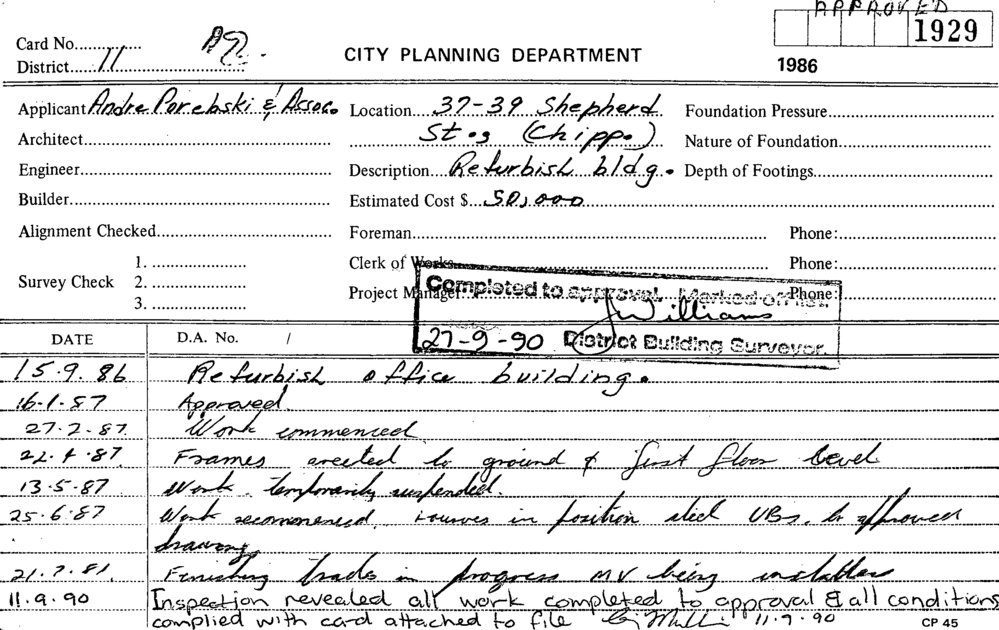 APPROVED
1929
1986
Card No...............
District.....11..............................
CITY PLANNING DEPARTMENT
Applicant Andre Porebski & Assoc.
Location....37-39 Shepherd
St., (Chippo.)
Foundation Pressure
Architect
Nature of Foundation
Engineer
Description....Refurbish bldg.
Depth of Footings
Builder
Estimated Cost $...50,000
Alignment Checked
Foreman
Phone:
Survey Check
1.
2.
3.
Clerk of Works
Phone:
Project Manager
Phone:
Completed to approval. Marked off list.
J Williams
27-9-90 District Building Surveyor.
DATE
D.A. No. /
15.9.86 Refurbish office building.
16.1.87 Approved
27.2.87. Work commenced
22.4.87 Frames erected to ground & first floor level
13.5.87 Work temporarily suspended.
25.6.87 Work recommenced. in position steel UBs. to approved
drawing
21.7.81. Finishing trades in progress MV being
11.9.90 Inspection revealed all work completed to approval & all conditions
complied with card attached to file 11.9.90
CP 45